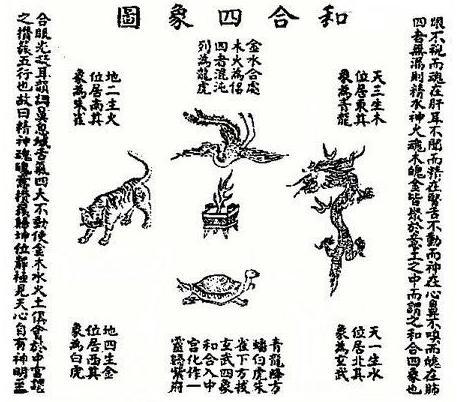 和合四象圖
眼不視而魂在肝耳不聞而精在腎舌不動而神在心鼻不嗅而魄在肺
四者無漏則精水神火魂木魄金皆聚於意土之中而謂之和合四象也
天三生木
位居東其
象為青龍
金水合處
木火為侶
四者混沌
列為龍虎
地二生火
位居南其
象為朱雀
天一生水
位居北其
象為玄武
青龍降方
蟠白虎朱
雀下方扳
玄武四象
和合入中
宮化作一
靈歸紫府
地四生金
位居西其
象為白虎
合眼光凝耳韻調鼻息緘舌氣四大不動使金木水火土俱會於中宮謂
之攢簇五行也故曰精神魂魄意攢簇歸坤位靜極見天心自有神明至